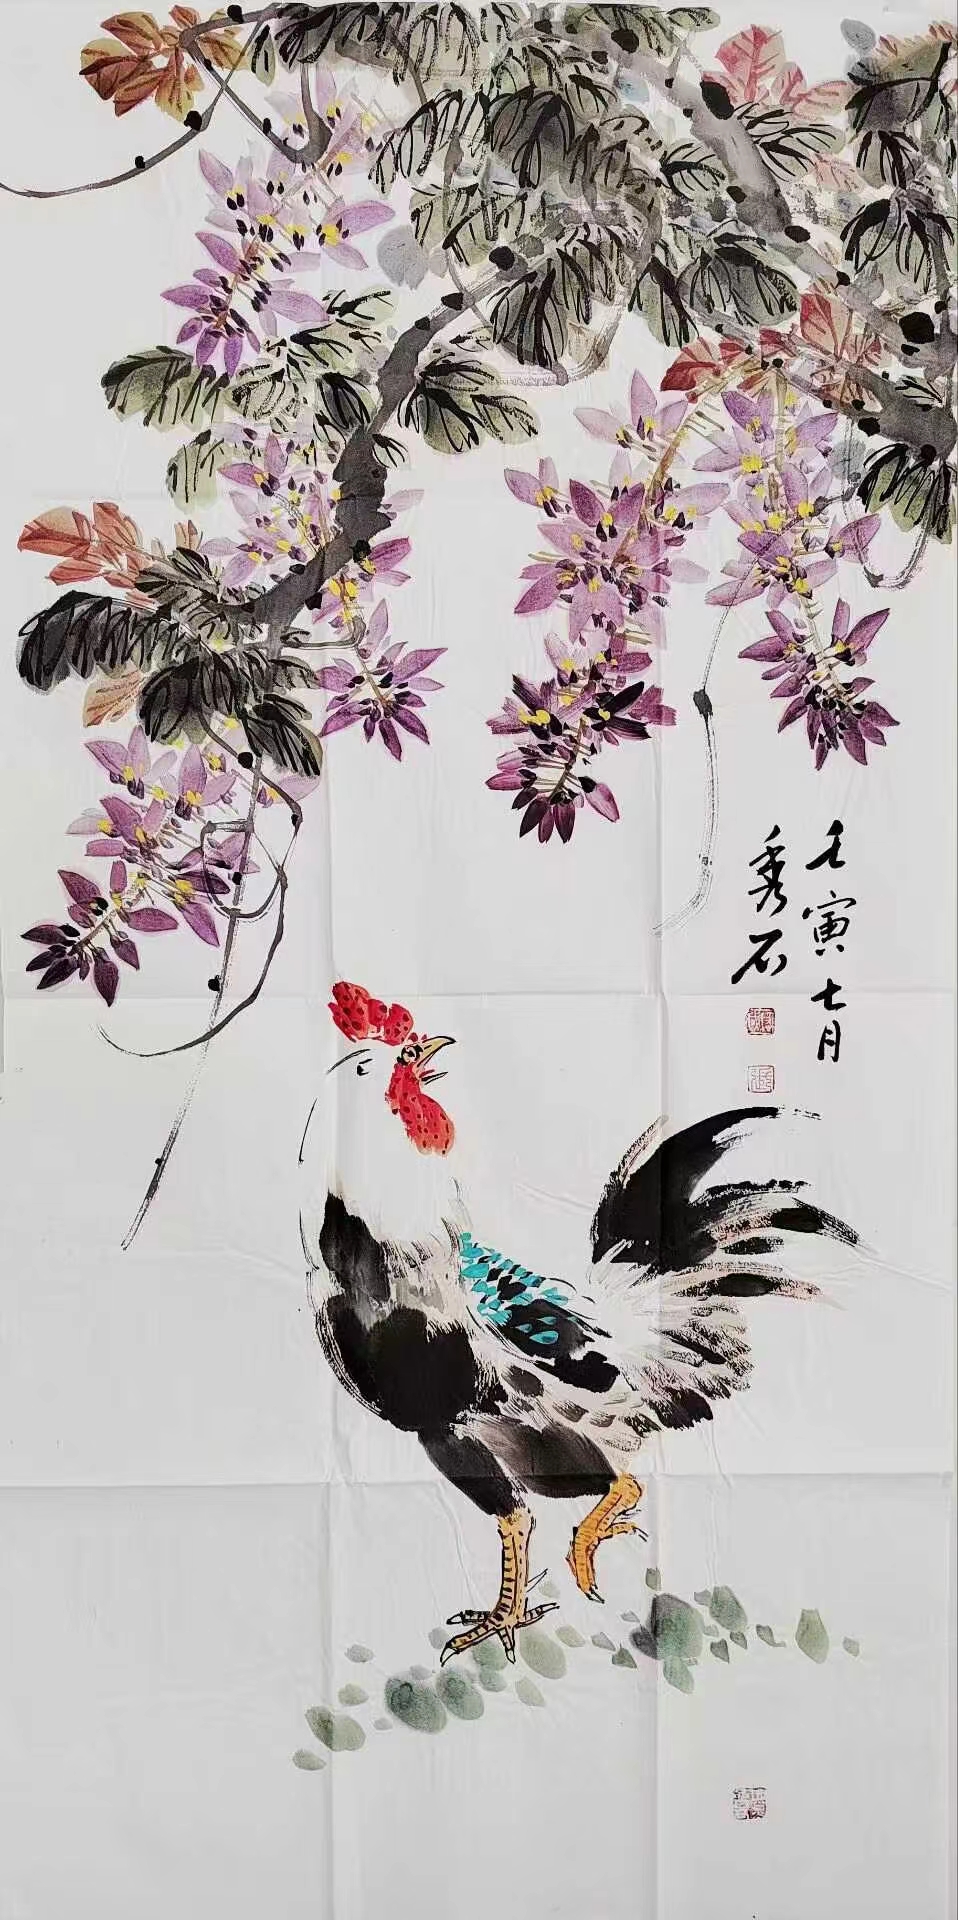 壬寅七月
秀石